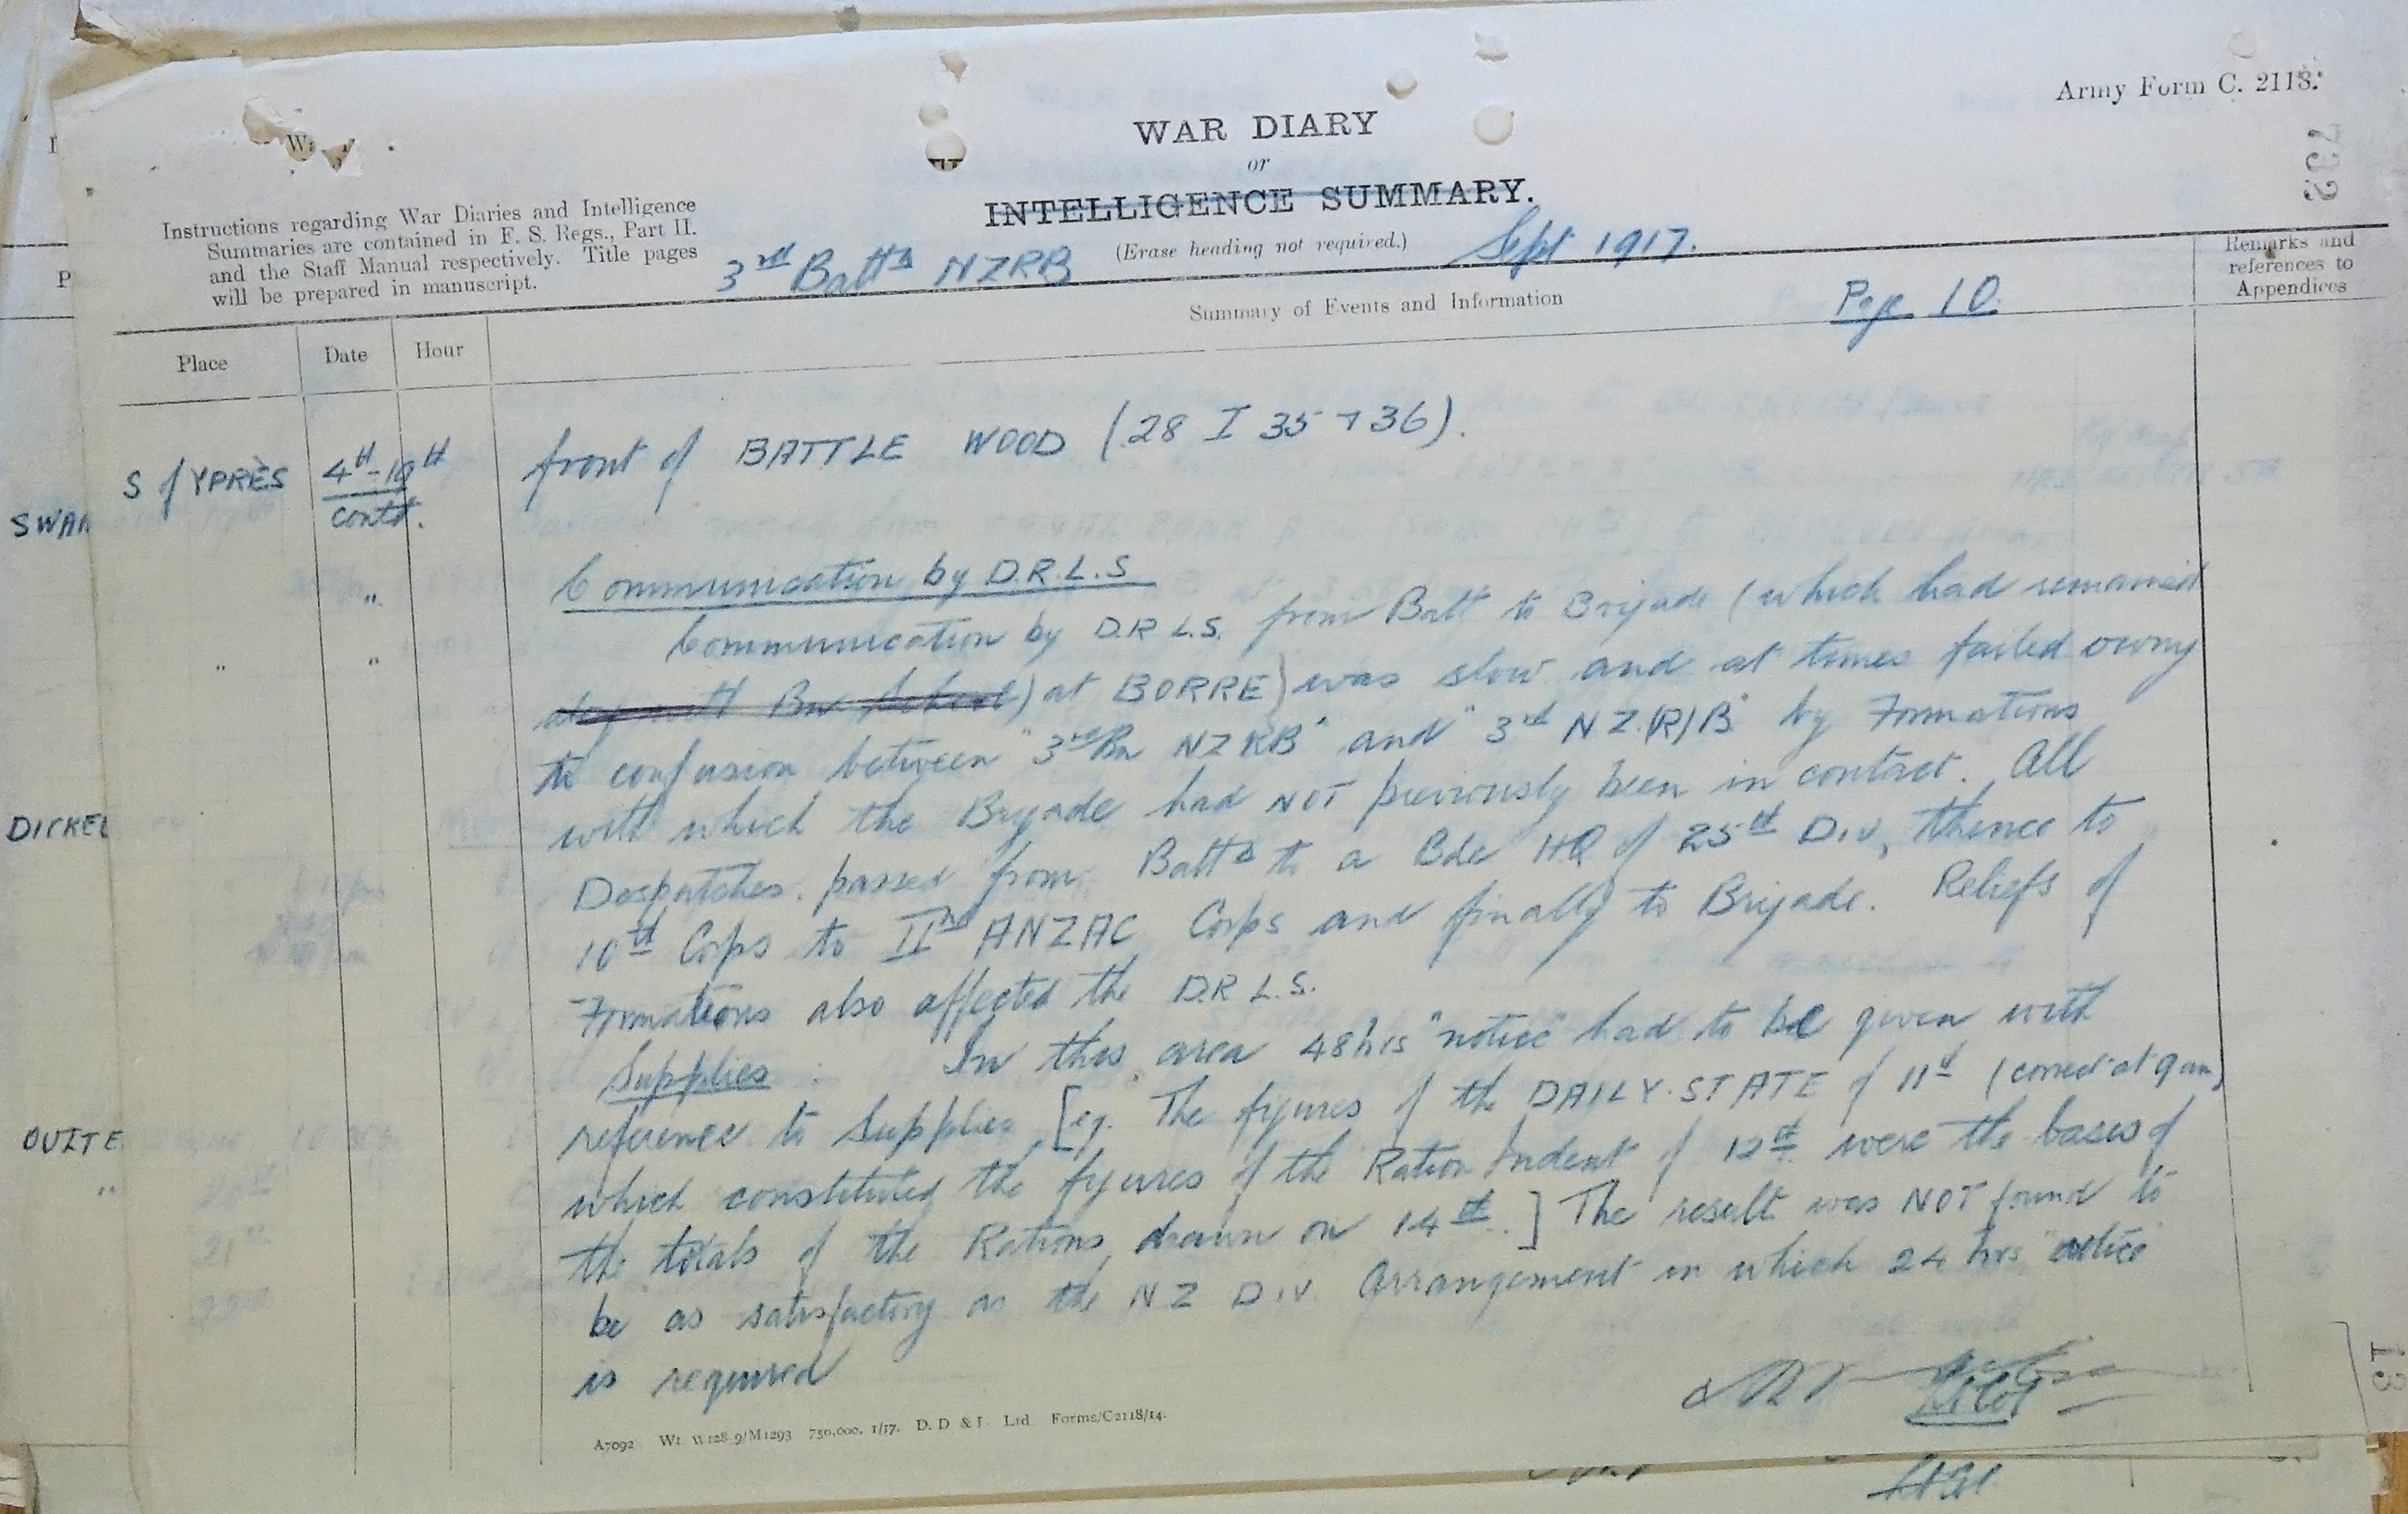 Army Form C. 2118.
732
WAR DIARY
or
INTELLIGENCE SUMMARY.
(Erase heading not required.)
Instructions regarding War Diaries and Intelligence
Summaries are contained in F. S. Regs., Part II.
and the Staff Manual respectively. Title pages
will be prepared in manuscript.
3rd Battn NZRB
Sept 1917.
Page 10.
Summary of Events and Information
Remarks and
references to
Appendices
Place
Date
Hour
S of YPRÈS
4th-10th
contd.
front of BATTLE WOOD (28 I 35 + 36).
SWAN
Communication by D.R.L.S
"
Communication by D.R.L.S. from Batt to Brigade (which had remained
" "
at BORRE) was slow and at times failed owing
to confusion between "3rd Bn NZRB" and "3rd N.Z.(R)B" by Formations
with which the Brigade had NOT previously been in contact. All
DICKEB
Despatches passed from Battn to a Bde HQ of 25th Div, thence to
10th Corps to IInd ANZAC Corps and finally to Brigade. Reliefs of
Formations also affected the D.R.L.S.
Supplies In this area 48hrs "notice" had to be given with
reference to Supplies [eg. The figures of the DAILY STATE of 11th (correct at 9am)
OUTTE
which constituted the figures of the Ration Indent of 12th were the basis of
"
the totals of the Rations drawn on 14th.] The result was NOT found to
be as satisfactory as the NZ Div. Arrangement in which 24 hrs "notice"
is required
A7092 Wt. W128.9/M1293 750,000. 1/17. D. D & L. Ltd. Forms/C2118/14.
13